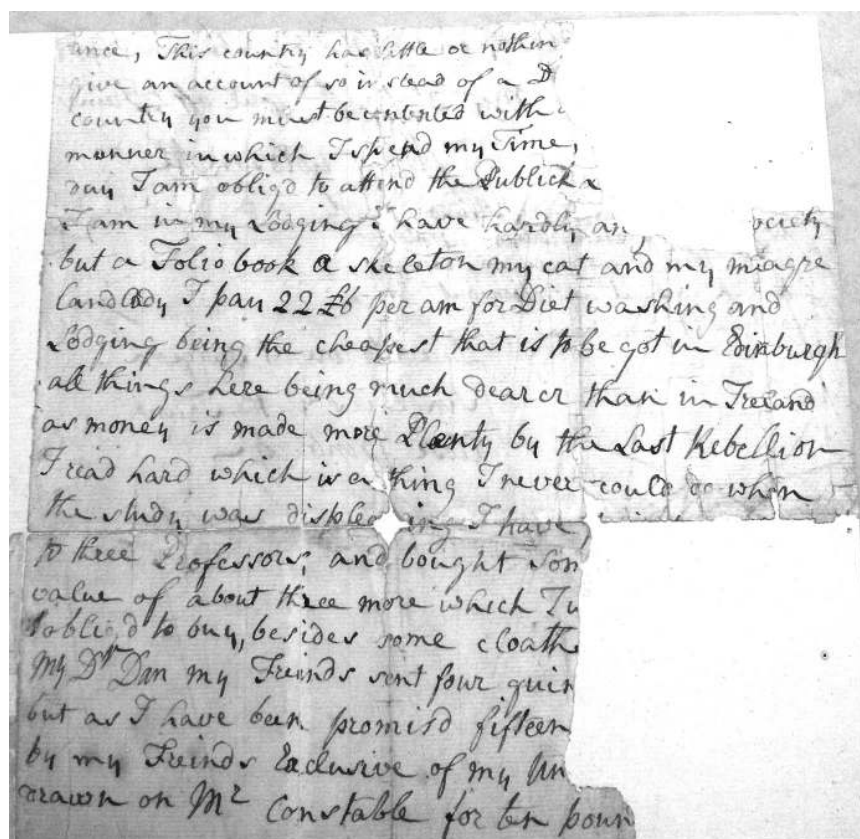 ance, This country has little or nothin
give an account of so in stead of a D
country you must be contented with
manner in which I spend my Time,
day I am oblig'd to attend the Publick
I am in my Lodging I have hardly an ociety
but a Folio book a skeleton my cat and my miagre
Landlady I pay 22 £6 per am for Diet washing and
Lodging being the cheapest that is to be got in Edinburgh
all things here being much dearer than in Ireland
as money is made more Plenty by the Last Rebellion
I read hard which is a thing I never could do when
the study was displeasing I have,
to three Professors, and bought som
value of about three more which I
oblig'd to buy, besides some cloath
My Dr Dan my Freinds sent four guin
but as I have been promis'd fifteen
by my Freinds Exclusive of my Un
drawn on Mr Constable for ten poun